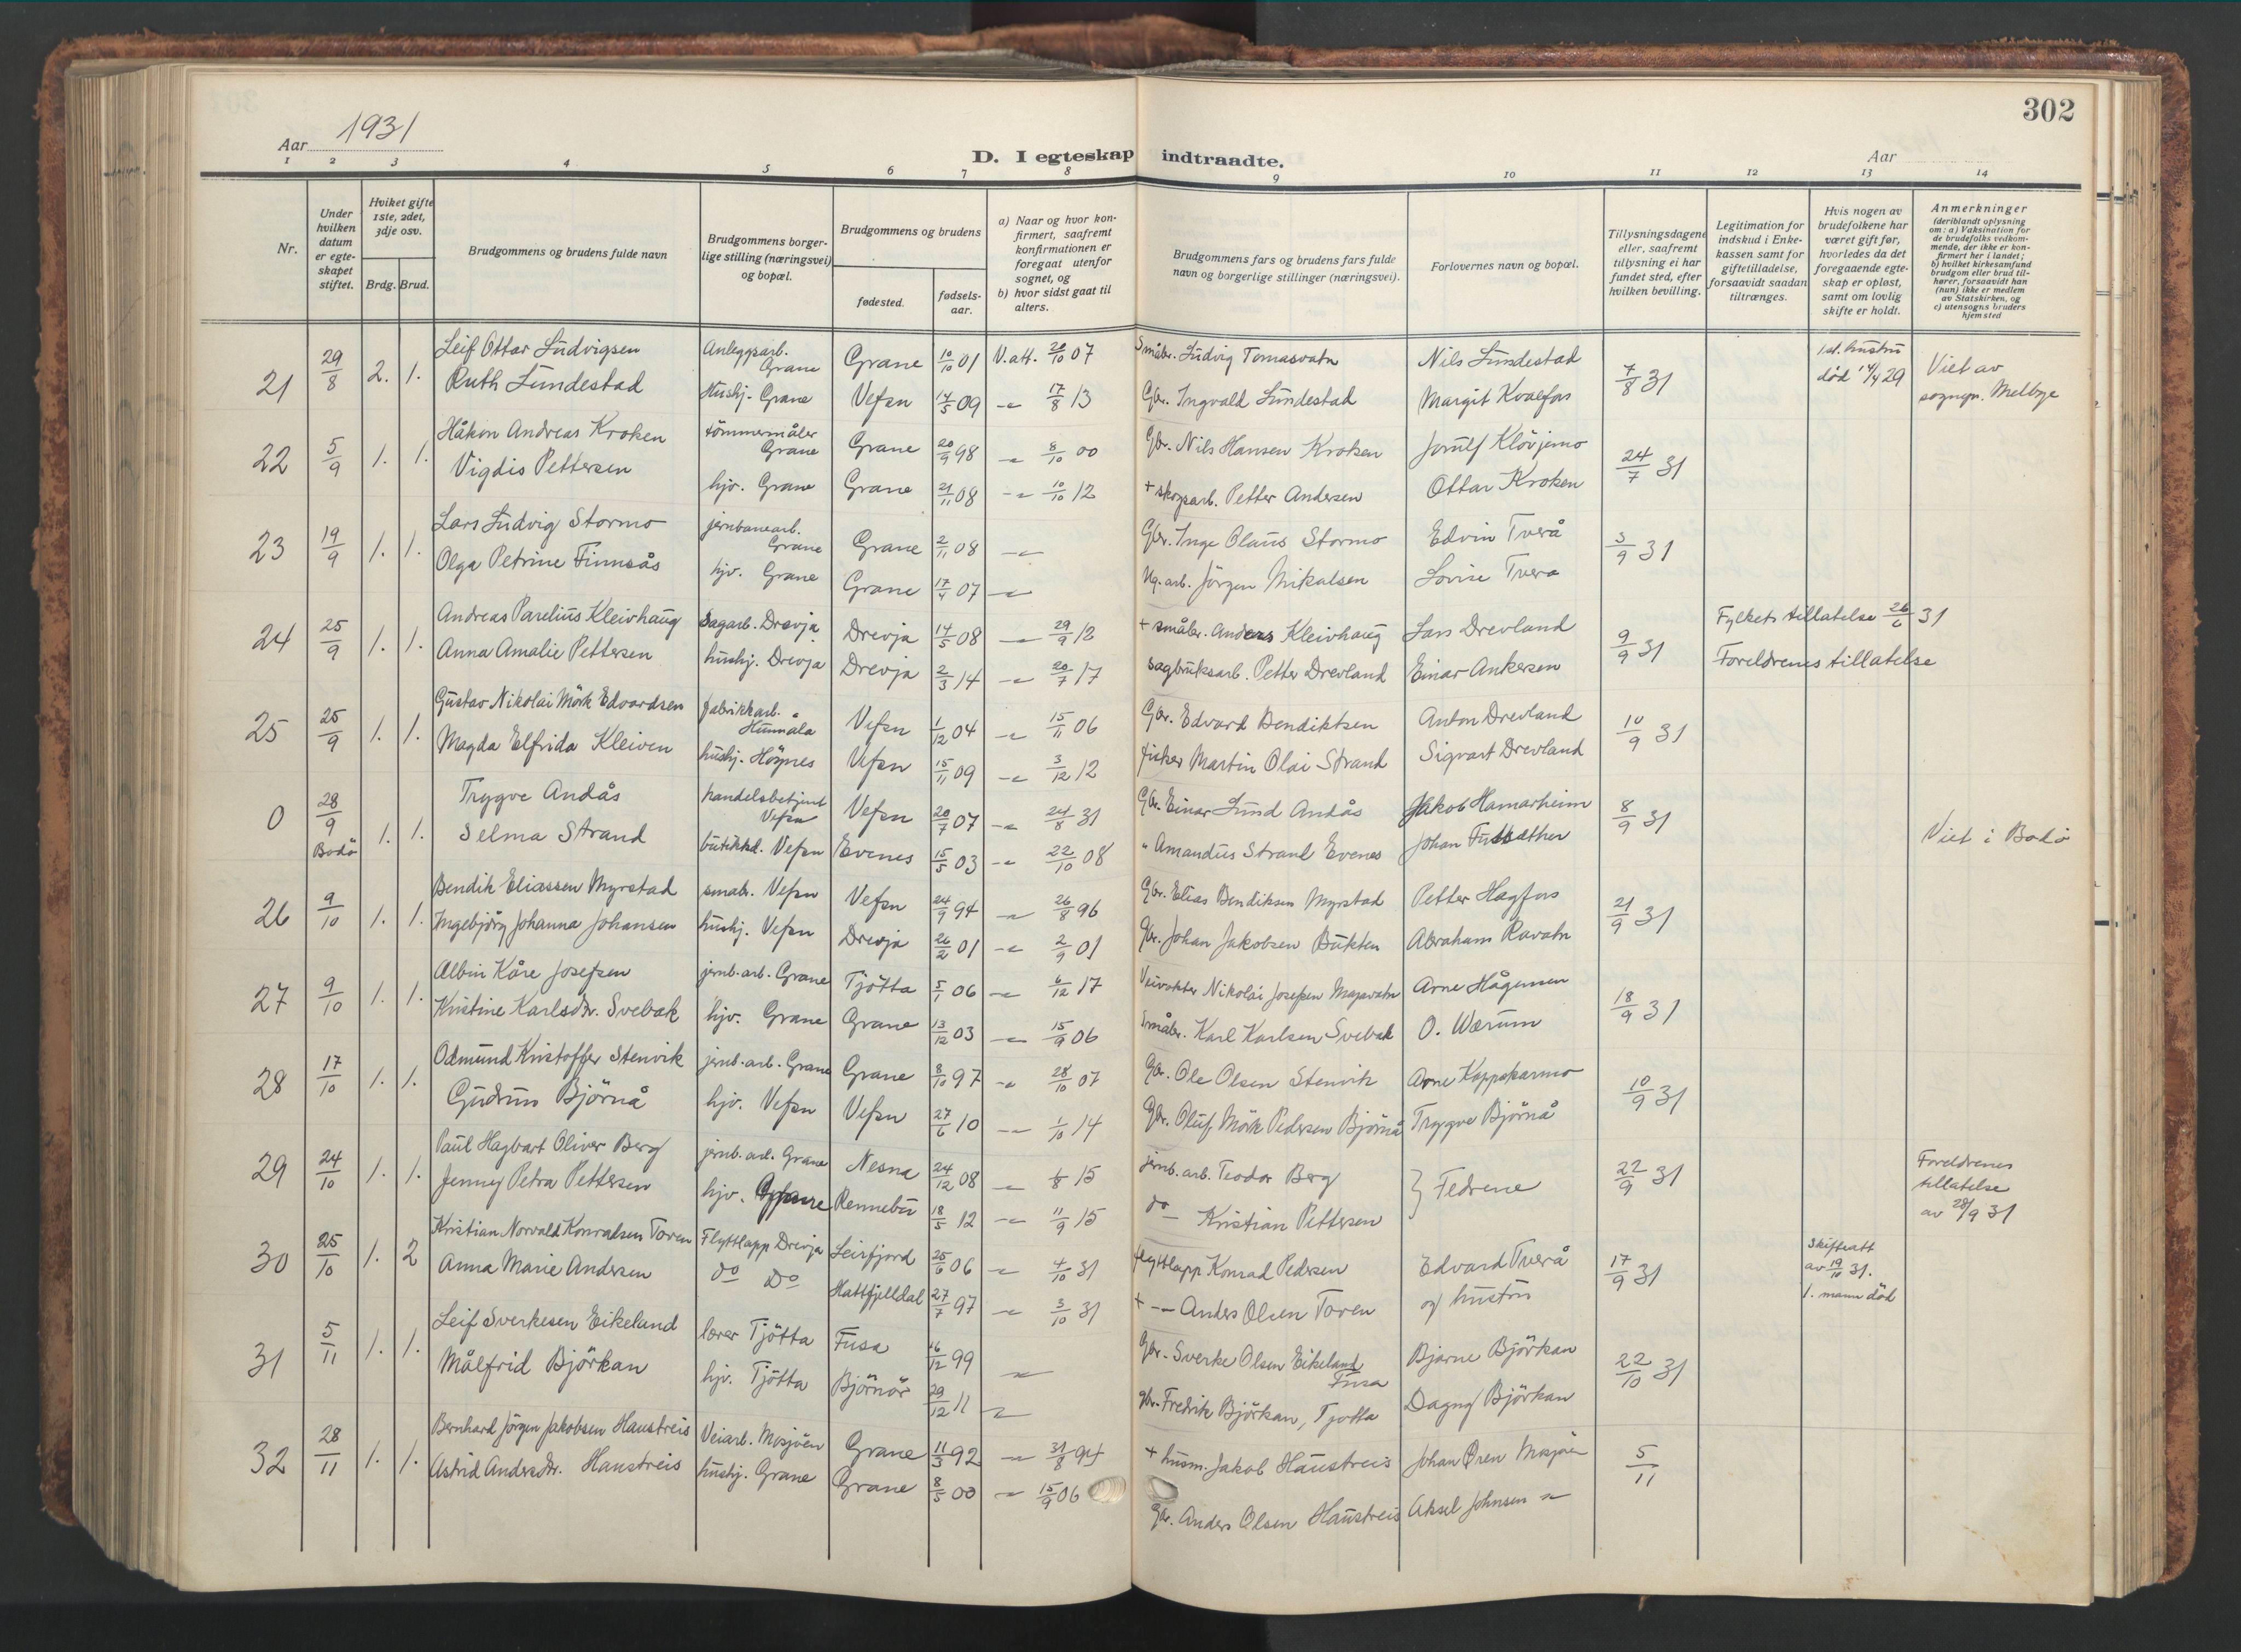 302
Aar 1931
D. I egteskap indtraadte.
Aar
1 2 3 4 5 6 7 8 9 10 11 12 13 14
Nr.
Under hvilken datum er egteskapet stiftet.
Hviket gifte 1ste, 2det, 3dje osv.
Brdg. Brud.
Brudgommens og brudens fulde navn
Brudgommens borgerlige stilling (næringsvei) og bopæl.
Brudgommens og brudens
fødested.
fødselsaar.
a) Naar og hvor konfirmert, saafremt konfirmationen er foregaat utenfor sognet, og
b) hvor sidst gaat til alters.
Brudgommens fars og brudens fars fulde navn og borgerlige stillinger (næringsvei).
Forlovernes navn og bopæl.
Tillysningsdagene eller, saafremt tillysning ei har fundet sted, efter hvilken bevilling.
Legitimation for indskud i Enkekassen samt for giftetilladelse, forsaavidt saadan tiltrænges.
Hvis nogen av brudefolkene har været gift før, hvorledes da det foregaaende egteskap er opløst, samt om lovlig skifte er holdt.
Anmerkninger
(deriblandt oplysning om: a) Vaksination for de brudefolks vedkommende, der ikke er konfirmert her i landet;
b) hvilket kirkesamfund brudgom eller brud tilhører, forsaavidt han (hun) ikke er medlem av Statskirken, og
c) utensogns bruders hjemsted
21 29/8 2. 1. Leif Ottar Ludvigsen Anleggsarb. Grane Grane 10/10 01 V.att. 20/10 07 Småbr. Ludvig Tomasvatn Nils Lundestad 7/8 31 1st. hustru død 14/4 29 Viet av sognepr. Melbye
Ruth Lundestad Hushj. Grane Vefsn 14/5 09 17/8 13 Gbr. Ingvald Lundestad Margit Kvalfors
22 5/9 1. 1. Håkon Andreas Kroken tømmermåler Grane Grane 20/9 98 8/10 00 Gbr. Nils Hansen Kroken Jorulf Klövjemo 24/7 31
Vigdis Pettersen hjv. Grane Grane 21/11 08 10/10 12 + skogsarb. Petter Andersen Ottar Kroken
23 19/9 1. 1. Lars Ludvig Stormo jernbanearb. Grane Grane 2/11 08 Gbr. Inge Olaus Stormo Edvin Tverå 3/9 31
Olga Petrine Finnsås hjv. Grane Grane 17/4 07 Jörgen Mikalsen Lovise Tverå
24 25/9 1. 1. Andreas Parelius Kleivhaug Sagarb. Drevja Drevja 14/5 08 29/9 12 + småbr. Anders Kleivhaug Lars Drevland 9/9 31 Fylkets tillatelse 26/6 31
Anna Amalie Pettersen hushj. Drevja Drevja 2/3 14 20/7 17 Sagbruksarb. Petter Drevland Einar Ankersen Foreldrenes tillatelse
25 25/9 1. 1. Gustav Nikolai Mörk Edvardsen fabrikkarb. Vefsn 1/12 04 15/11 06 Gbr. Edvard Bendiktsen Anton Drevland 10/9 31
Magda Elfrida Kleiven hushj. Höynes Vefsn 15/11 09 3/12 12 fisker Martin Olai Strand Sigvart Drevland
0 28/9 Bodø 1. 1. Trygve Andås handelsbetjent Vefsn Vefsn 20/7 07 24/8 31 Gbr. Einar Lund Andås Jakob Hamarheim 8/9 31 Viet i Bodø
Selma Strand Vefsn Evenes 15/5 03 22/10 08 " Amandus Strand Evenes Johan
26 9/10 1. 1. Bendik Eliassen Myrstad småbr. Vefsn Vefsn 24/9 94 26/8 96 Gbr. Elias Bendiksen Myrstad Petter Hagfors 21/9 31
Ingebjörg Johanna Johansen hushj. Vefsn Drevja 26/2 01 2/9 01 Gbr. Johan Jakobsen Bukten Abraham Ravatn
27 9/10 1. 1. Albin Kåre Josefsen jernb.arb. Grane Tjötta 5/1 06 6/12 17 Veivokter Nikolai Josefsen Majavatn Arne Hågensen 18/9 31
Kristine Karlsdtr. Svebak hjv. Grane Grane 13/12 03 15/9 06 Småbr. Karl Karlsen Svebak O. Wærum
28 17/10 1. 1. Odmund Kristoffer Stenvik jernb.arb. Grane Grane 8/10 97 28/10 07 Gbr. Ole Olsen Stenvik Arne Kappskarmo 10/9 31
Gudrun Björnå hjv. Vefsn Vefsn 27/6 10 1/10 14 Gbr. Oluf Mörk Pedersen Björnå Trygve Björnå
29 24/10 1. 1. Paul Hagbart Oliver Berg jernb.arb. Grane Nesna 24/12 08 1/8 15 jernb.arb. Teodor Berg } Fedrene 22/9 31 Foreldrenes tillatelse av 28/9 31
Jenny Petra Pettersen hjv. Rennebu 18/5 12 11/9 15 do Kristian Pettersen
30 25/10 1. 2 Kristian Norvald Konradsen Toven Flyttlapp Drevja Leirfjord 25/6 06 4/10 31 flyttlapp Konrad Pedersen Edvard Tverå 17/9 31 Skifteatt av 19/10 31.
Anna Marie Andersen do Do Hattfjelldal 27/7 97 3/10 31 + — Anders Olsen Toven og hustru 1. mann død
31 5/11 1. 1. Leif Sverkesen Eikeland lærer Tjötta Fusa 16/12 99 Gbr. Sverke Olsen Eikeland Fusa Bjarne Björkan 22/10 31
Målfrid Björkan hjv. Tjötta Björnör 29/12 11 gbr. Fredrik Björkan, Tjøtta Dagny Björkan
32 28/11 1. 1. Bernhard Jörgen Jakobsen Haustreis Veiarb. Mosjöen Grane 11/3 92 31/8 94 + husm. Jakob Haustreis Johan Øren Mosjøen 5/11
Astrid Andersdtr. Haustreis hushj. Grane Grane 8/5 00 15/9 06 Gbr. Anders Olsen Haustreis Aksel Johnsen